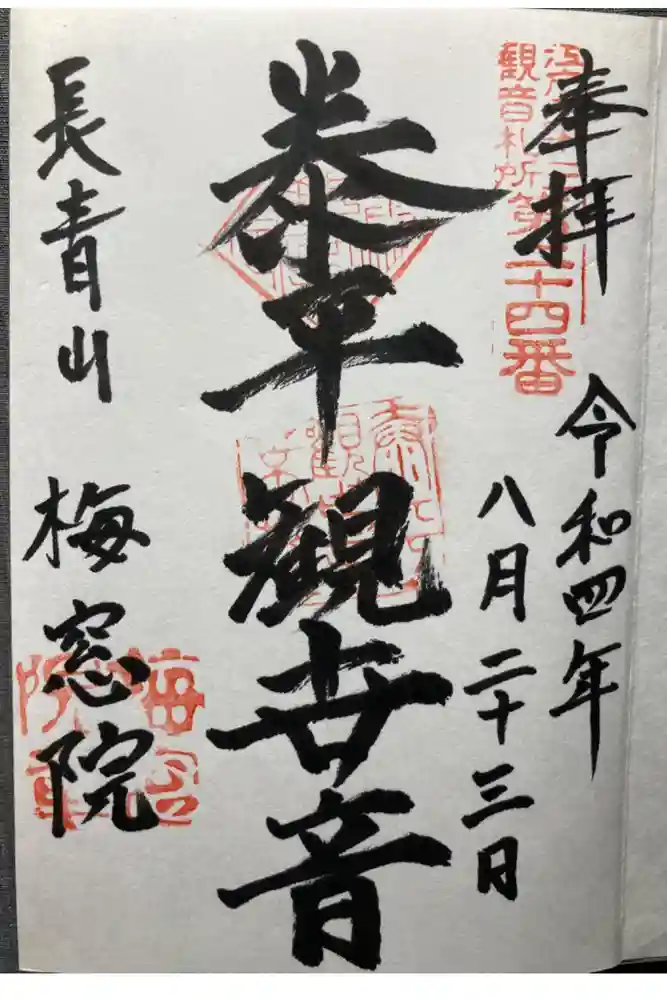 奉拝
令和四年
八月二十三日
観音札所第二十四番
泰平觀世音
長青山
梅窓院